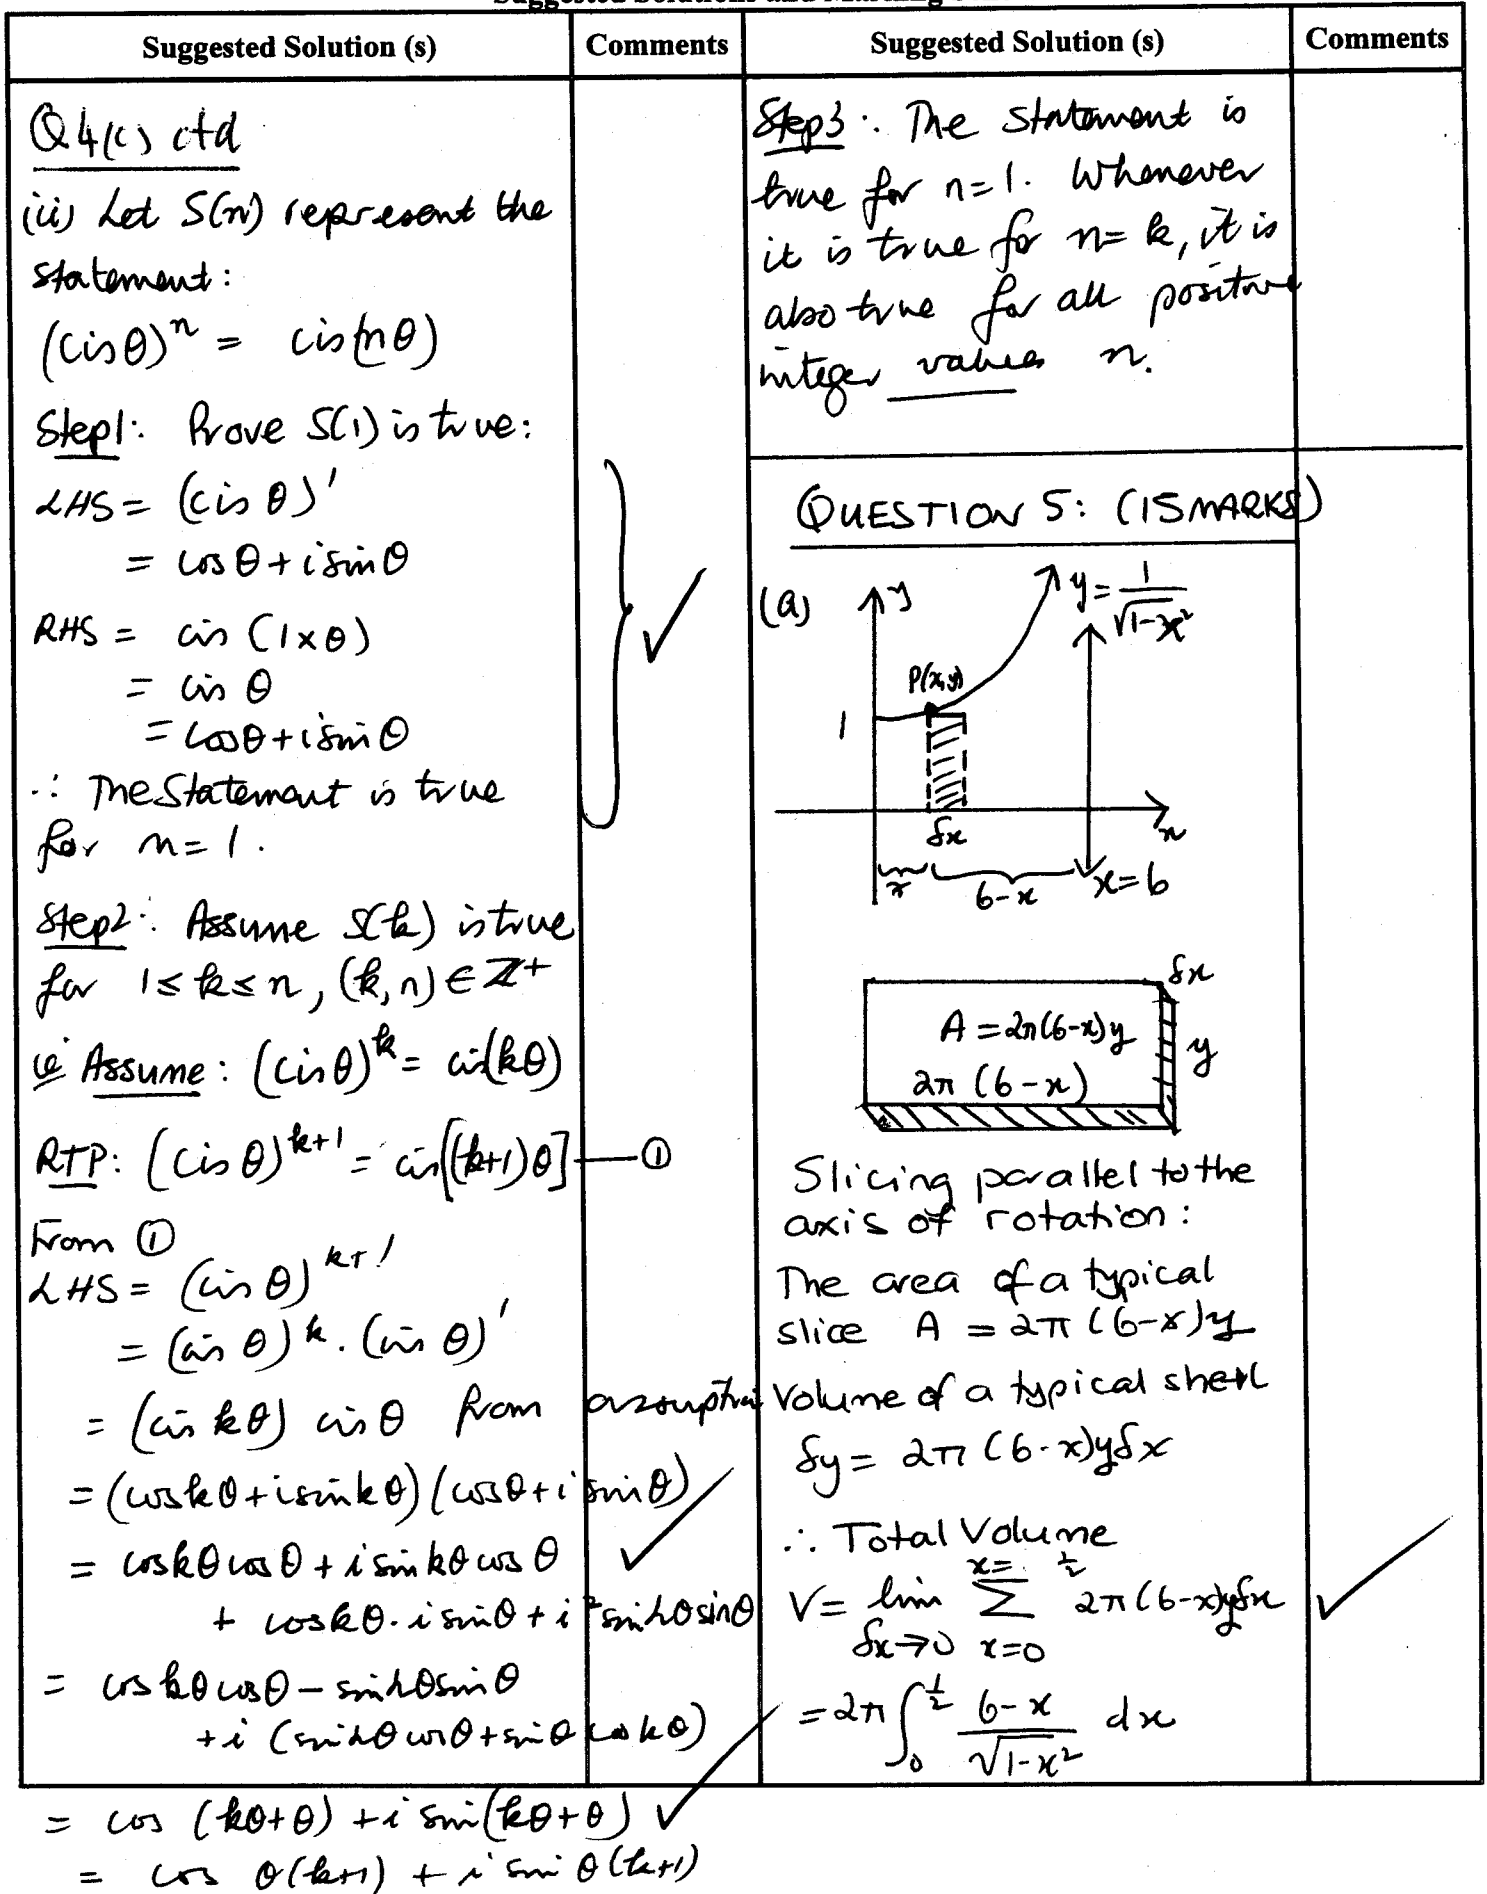 Suggested Solution (s)
Comments
Q4(c) ctd
(iii) Let S(n) represent the
statement:
(cis θ)^n = cis(nθ)
Step1: Prove S(1) is true:
LHS = (cis θ)^1
= cos θ + i sin θ
RHS = cis (1×θ)
= cis θ
= cos θ + i sin θ
∴ The Statement is true
for n=1.
Step2: Assume S(k) is true
for 1≤k≤n, (k,n) ∈ ℤ+
ie Assume: (cis θ)^k = cis(kθ)
RTP: (cis θ)^k+1 = cis[(k+1)θ] — ①
From ①
LHS = (cis θ)^k+1
= (cis θ)^k . (cis θ)^1
= (cis kθ) cis θ from assumption
= (cos kθ + i sin kθ)(cos θ + i sin θ)
= cos kθ cos θ + i sin kθ cos θ
+ cos kθ . i sin θ + i^2 sin kθ sin θ
= cos kθ cos θ − sin kθ sin θ
+ i (sin kθ cos θ + sin θ cos kθ)
= cos (kθ+θ) + i sin(kθ+θ)
= cos θ(k+1) + i sin θ(k+1)
Suggested Solution (s)
Comments
Step3: The statement is
true for n=1. Whenever
it is true for n=k, it is
also true for all positive
integer values n.
QUESTION 5: (15 MARKS)
(a)
y
y = 1/√1−x²
P(x,y)
1
δx
x
x
6−x
x=6
δx
A = 2π(6−x)y
y
2π (6−x)
Slicing parallel to the
axis of rotation:
The area of a typical
slice A = 2π(6−x)y
Volume of a typical shell
δy = 2π(6-x)yδx
∴ Total Volume
x= ½
V = lim Σ 2π(6−x)yδx
δx→0 x=0
= 2π ∫₀^½ 6−x/√1−x² dx